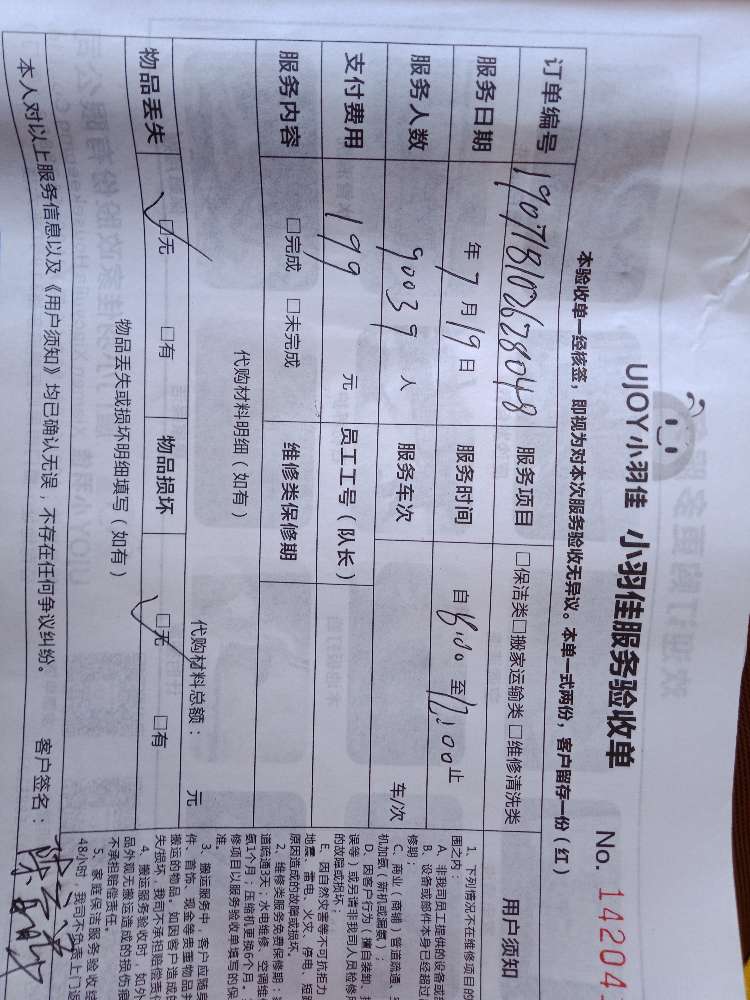 UJOY小羽佳 小羽佳服务验收单
No. 14204
本验收单一经核签，即视为对本次服务验收无异议。本单一式两份，客户留存一份（红）
订单编号 190718102628048 服务项目 □保洁类□搬家运输类□维修清洗类
服务日期 年7月19日 服务时间 自8:00至12:00止
服务人数 90039 人 服务车次 车/次
支付费用 199 元 员工工号（队长）
服务内容 □完成 □未完成 维修类保修期
代购材料明细（如有） 代购材料总额： 元
物品丢失 □无 □有 物品损坏 □无 □有
物品丢失或损坏明细填写（如有）
本人对以上服务信息以及《用户须知》均已确认无误，不存在任何争议纠纷。 客户签名：
用户须知
1、下列情况不在维修项目的
围之内：
A、非我司员工提供的设备或
B、设备或部件本身已经超过
修期；
C、商业（商铺）管道疏通、
机加氨（新机或漏氨）；
D、因客户行为（擅自装卸、
误等）或另请非我司人员检修
的故障或损坏；
E、因自然灾害等不可抗拒力
地震、雷电、火灾、停电、短
原因造成的故障或损坏。
2、维修类服务免费保修期：
道疏通3天；水电维修、空调维
氨1个月；压缩机更换6个月。
修项目以服务验收单填写的保
准。
3、搬运服务中，客户应随身
件、首饰、现金等贵重物品并
搬运的物品。如因客户造成
失损坏，我司不承担赔偿责
4、搬运服务验收时，如外
品外观无搬运造成的损伤痕
不承担赔偿责任。
5、家庭保洁服务验收结
48小时，我司不负责上门返